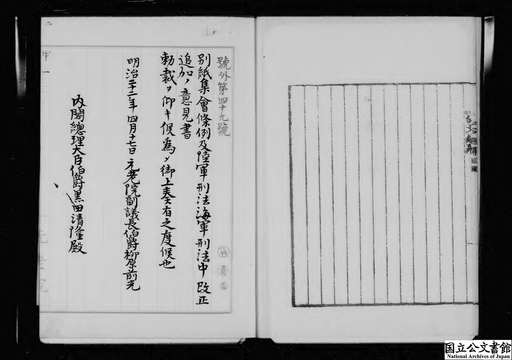 號外第四十九號
別紙集會條例及陸軍刑法海軍刑法中改正
追加ノ意見書
勅裁ヲ仰キ候為メ御上奏有之度候也
明治二十二年四月十七日元老院副議長伯爵柳原前光
内閣總理大臣伯爵黒田清隆殿
国立公文書館
National Archives of Japan